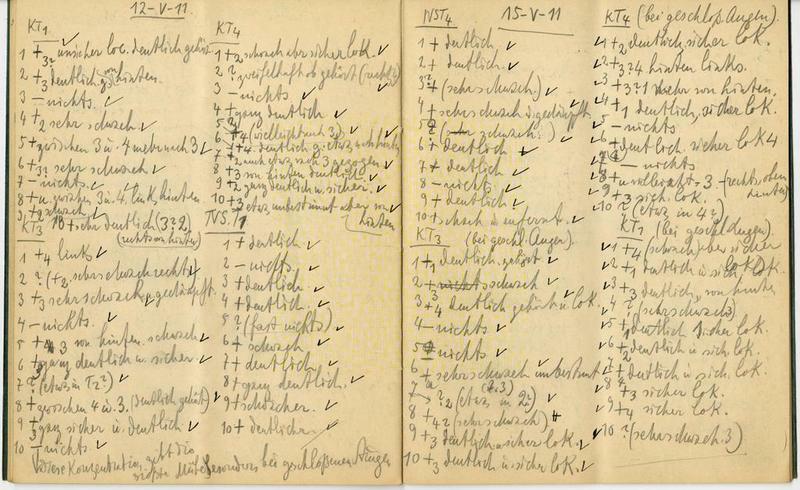 12-V-11.
KT1
1 + 3? unsicher loc. deutlich gehört
2 + 3 deutlich von hinten.
3 – nichts. ✓
4 + 2 sehr schwach ✓
5 + zwischen 3 u. 4 mehr nach 3 ✓
6 + 3? sehr schwach ✓
7 – nichts. ✓
8 + u. zwischen 3 u. 4. link, hinten
9 schwach ✓
10 + sehr deutlich (3? 2)
(rechts von hinten)
KT3
1 + 4 links ✓
2 ? (+2 sehr schwach rechts) ✓
3 + 3 sehr schwach, gedämpft.
4 – nichts. ✓
5 + 3 von hinten. schwach ✓
6 + ganz deutlich u. sicher. ✓
7 ? (etwa in 2?) ✓
8 + zwischen 4 u. 3. (deutlich gehört) ✓
9 + 3 ganz sicher u. deutlich ✓
10 – nichts ✓
diese Konzentration geht die
größte Mühe, besonders bei geschloßenen Augen
KT4
1 + 2 schwach aber sicher lok. ✓
2 ? zweifelhaft ob gehört (rechts?)
3 – nichts ✓
4 + ganz deutlich ✓
5 +4 (vielleicht nach 3) ✓
6 +4. deutlich
7 auch etwas nach 3 gezogen ✓
8 + 3 von hinten deutlich ✓
9 + 2 ganz deutlich u. sicher. ✓
10 + 3 etwas unbestimmt aber von
hinten
NST1
1 + deutlich ✓
2 – nichts. ✓
3 + deutlich ✓
4 + deutlich. ✓
5 ? (fast nichts) ✓
6 + schwach ✓
7 + deutlich. ✓
8 + ganz deutlich. ✓
9 + schwächer. ✓
10 + deutlicher ✓
15-V-11
NST4
1 + deutlich ✓
2 + deutlich. ✓
3 ? + (sehr schwach.) ✓
4 + sehr schwach u. gedämpft ✓
5 ? (sehr schwach.) ✓
6 + deutlich ✓
7 + deutlich ✓
8 – nichts ✓
9 + deutlich ✓
10 + schwach u. entfernt. ✓
KT3 (bei geschl. Augen).
1 + 1 deutlich gehört ✓
2 + nichts schwach ✓
3 + 4 deutlich gehört u. lok. ✓
4 – nichts ✓
5 – nichts ✓
6 + sehr schwach unbestimmt ✓
(2. 3)
7 → ? 2 (etwa in 2?) ✓
8 + 4 2 (sehr schwach) #
9 + 3 deutlich u. sicher lok. ✓
10 + 3 deutlich u. sicher lok. ✓
KT4 (bei geschloß. Augen).
✓ 1 + 2 deutlich, sicher lok.
✓ 2 + 3? 4 hinten links.
✓ 3 + 3? 1 mehr von hinten.
✓ 4 + 1 deutlich, sicher lok.
✓ 5 – nichts
✓ 6 – deutlich. sicher lok 4
✓ 7 – nichts
✓ 8 + u. vielleicht 2 – 3. (rechts, oben
hinten)
✓ 9 + 3 sich. lok.
✓ 10 ? (etwa in 4?)
KT1 (bei geschl. Augen).
✓ 1 + 4 (schwach) aber sicher
lok.
✓ 2 + 1 deutlich u. sich. lok.
✓ 3 + 3 deutlich, von hinten
✓ 4 ? (sehr schwach)
✓ 5 + 1 deutlich sicher lok.
✓ 6 + 2 deutlich u. sich. lok.
✓ 7 + deutlich u. sich. lok.
✓ 8 + 3 sicher lok.
✓ 9 + 4 sicher lok.
✓ 10 ? (sehr schwach. 3)